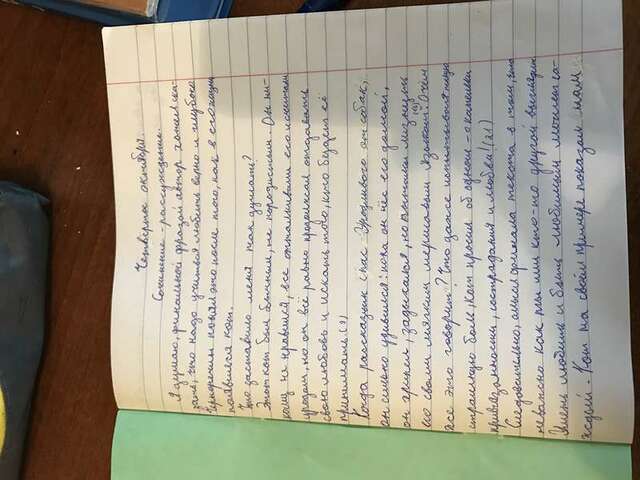 Четвёртое октября.
Сочинение-рассуждение.
Я думаю, финальной фразой автор хотел ска-
зать, что надо учиться любить верно и глубоко
понял это после того, как в его жизни
появился кот.
Что заставило меня так думать?
Этот кот был бычным, не породистым. Он ни-
кому не нравился, все отталкивали его считали
уродом, но он всё равно продолжал отдавать
свою любовь и искать того, кто будет её
принимать.
Когда рассказчик спас Уродливого от собак,
он сильно удивился: пока он нёс его домой,
он хрипел, задыхался, но пытался лизнуть
его своим мягким языком. О чём
же это говорит? Что даже испытывая такую
страшную боль, кот просил об одном - о капельки
привязанности, сострадания и любви! (21)
Следовательно, смысл финала текста в том, что
неважно как ты или кто-то другой выглядит.
Уметь любить и быть любимым может ка-
ждый. Кот на своём примере показал нам